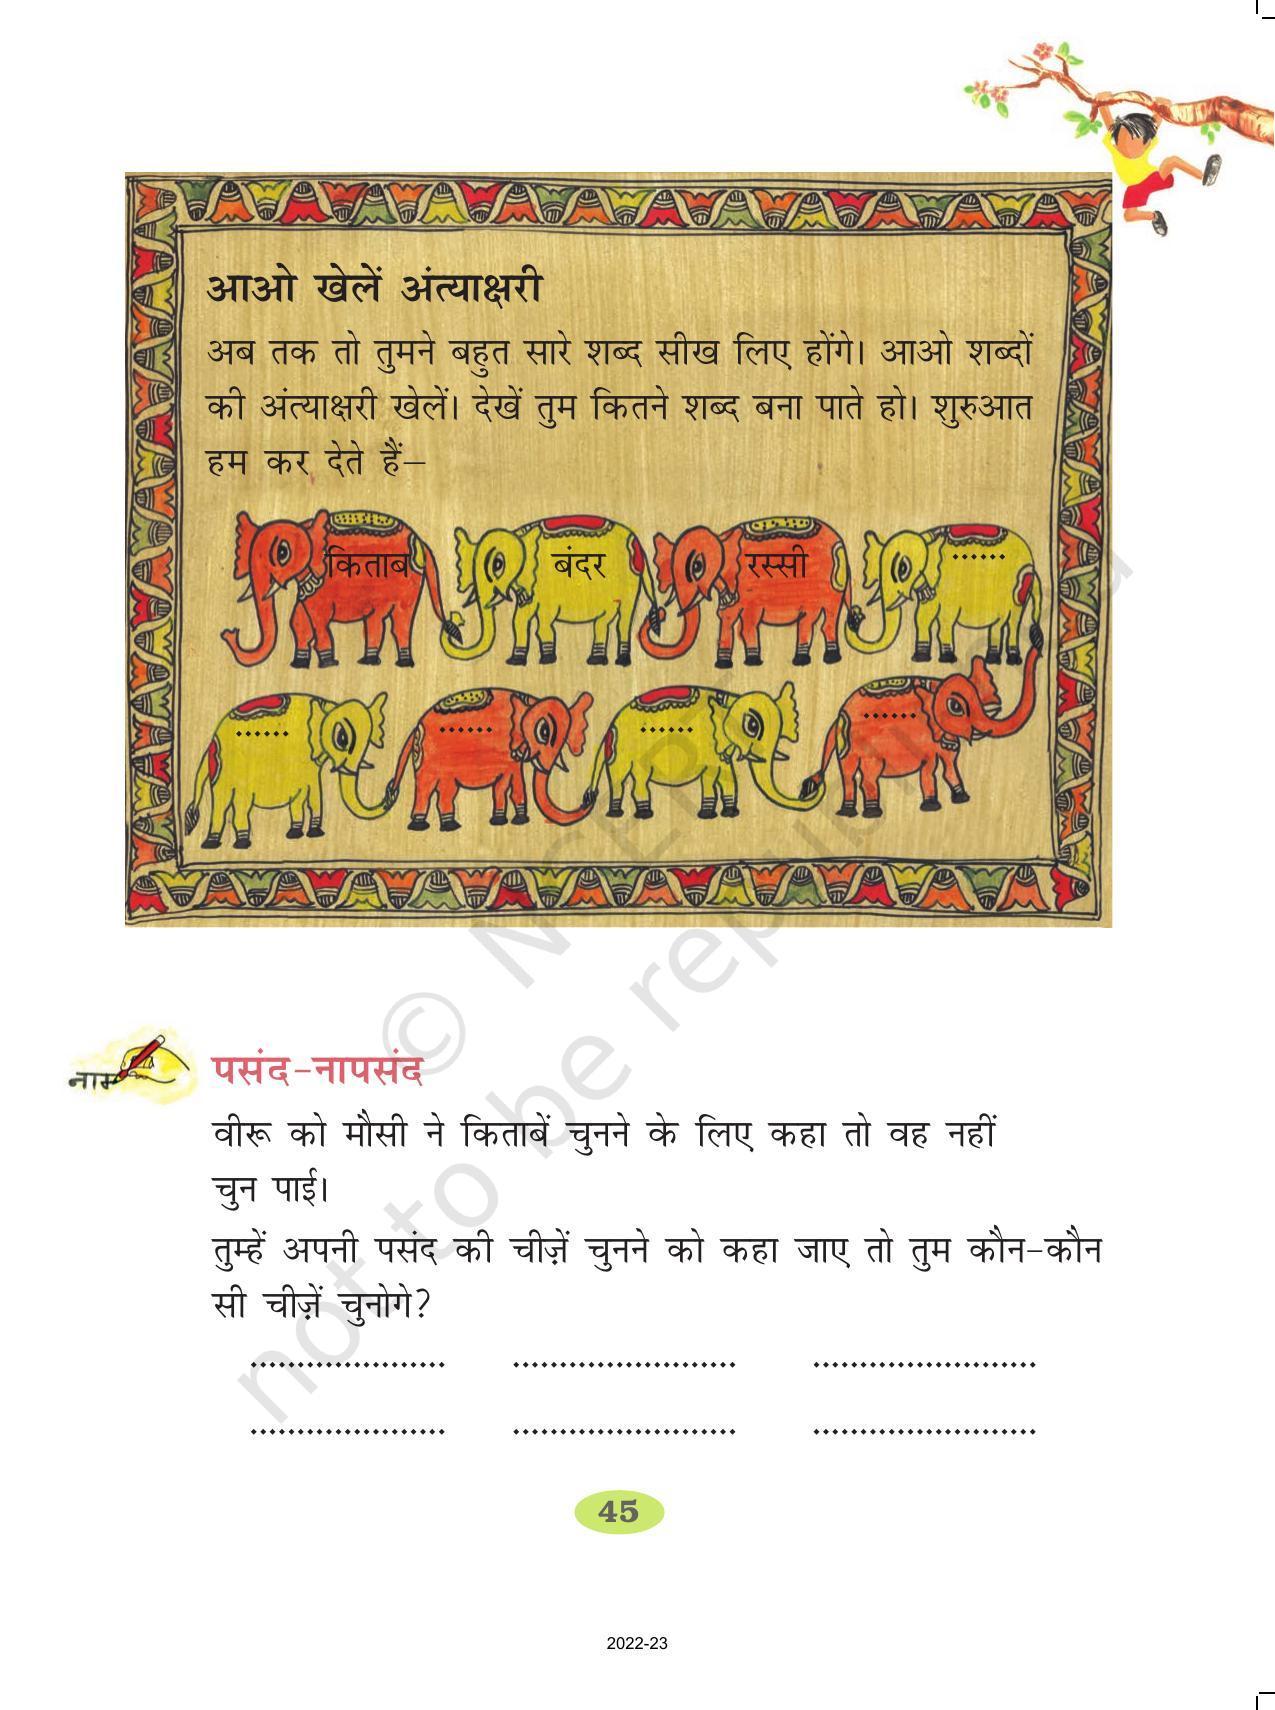 आओ खेलें अंत्याक्षरी
अब तक तो तुमने बहुत सारे शब्द सीख लिए होंगे। आओ शब्दों
की अंत्याक्षरी खेलें। देखें तुम कितने शब्द बना पाते हो। शुरुआत
हम कर देते हैं–
किताब बंदर रस्सी ......
...... ...... ...... ......
नाम
पसंद-नापसंद
वीरू को मौसी ने किताबें चुनने के लिए कहा तो वह नहीं
चुन पाई।
तुम्हें अपनी पसंद की चीज़ें चुनने को कहा जाए तो तुम कौन-कौन
सी चीज़ें चुनोगे?
..................... ........................ ........................
..................... ........................ ........................
45
2022-23
© NCERT
not to be republished